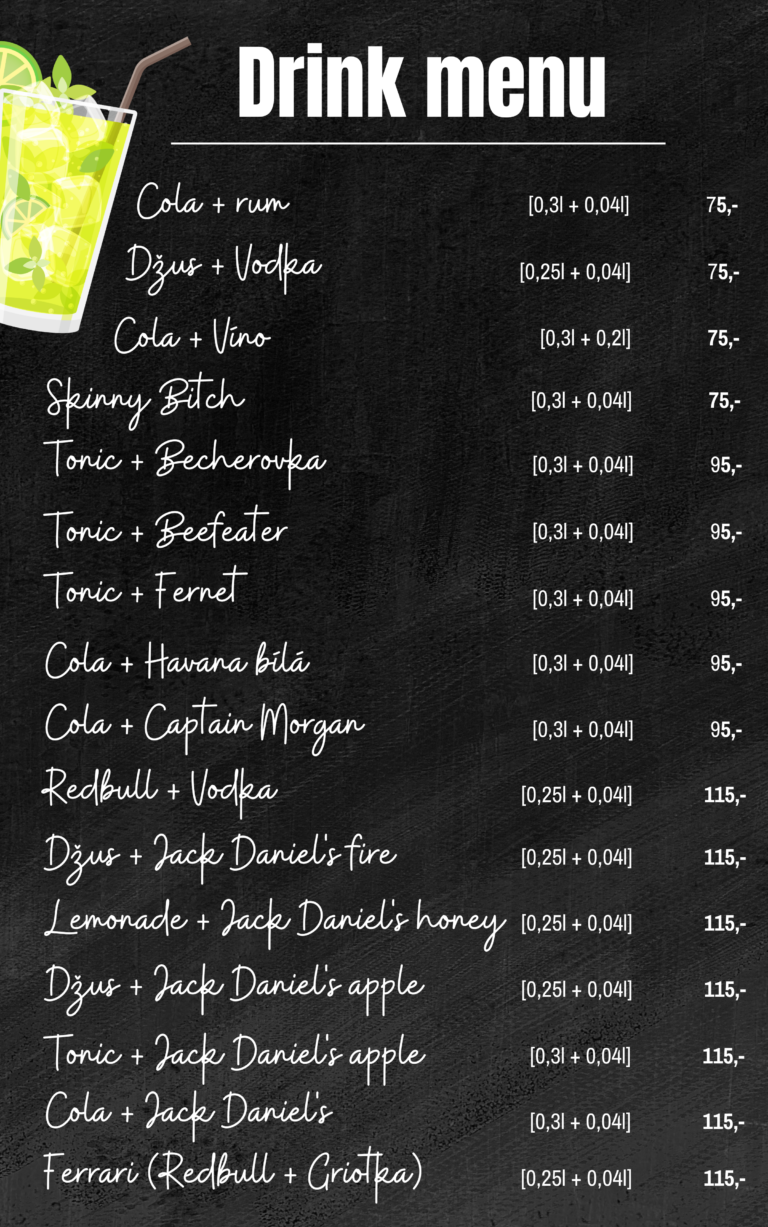 Drink menu
Cola + rum [0,3l + 0,04l] 75,-
Džus + Vodka [0,25l + 0,04l] 75,-
Cola + Víno [0,3l + 0,2l] 75,-
Skinny Bitch [0,3l + 0,04l] 75,-
Tonic + Becherovka [0,3l + 0,04l] 95,-
Tonic + Beefeater [0,3l + 0,04l] 95,-
Tonic + Fernet [0,3l + 0,04l] 95,-
Cola + Havana bílá [0,3l + 0,04l] 95,-
Cola + Captain Morgan [0,3l + 0,04l] 95,-
Redbull + Vodka [0,25l + 0,04l] 115,-
Džus + Jack Daniel's fire [0,25l + 0,04l] 115,-
Lemonade + Jack Daniel's honey [0,25l + 0,04l] 115,-
Džus + Jack Daniel's apple [0,25l + 0,04l] 115,-
Tonic + Jack Daniel's apple [0,3l + 0,04l] 115,-
Cola + Jack Daniel's [0,3l + 0,04l] 115,-
Ferrari (Redbull + Griotka) [0,25l + 0,04l] 115,-